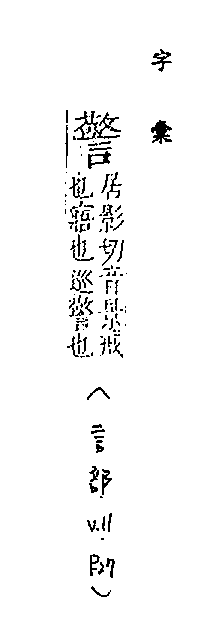 字彙
警
居影切音景戒
也寤也巡警也
(言部 V.11 P.27)